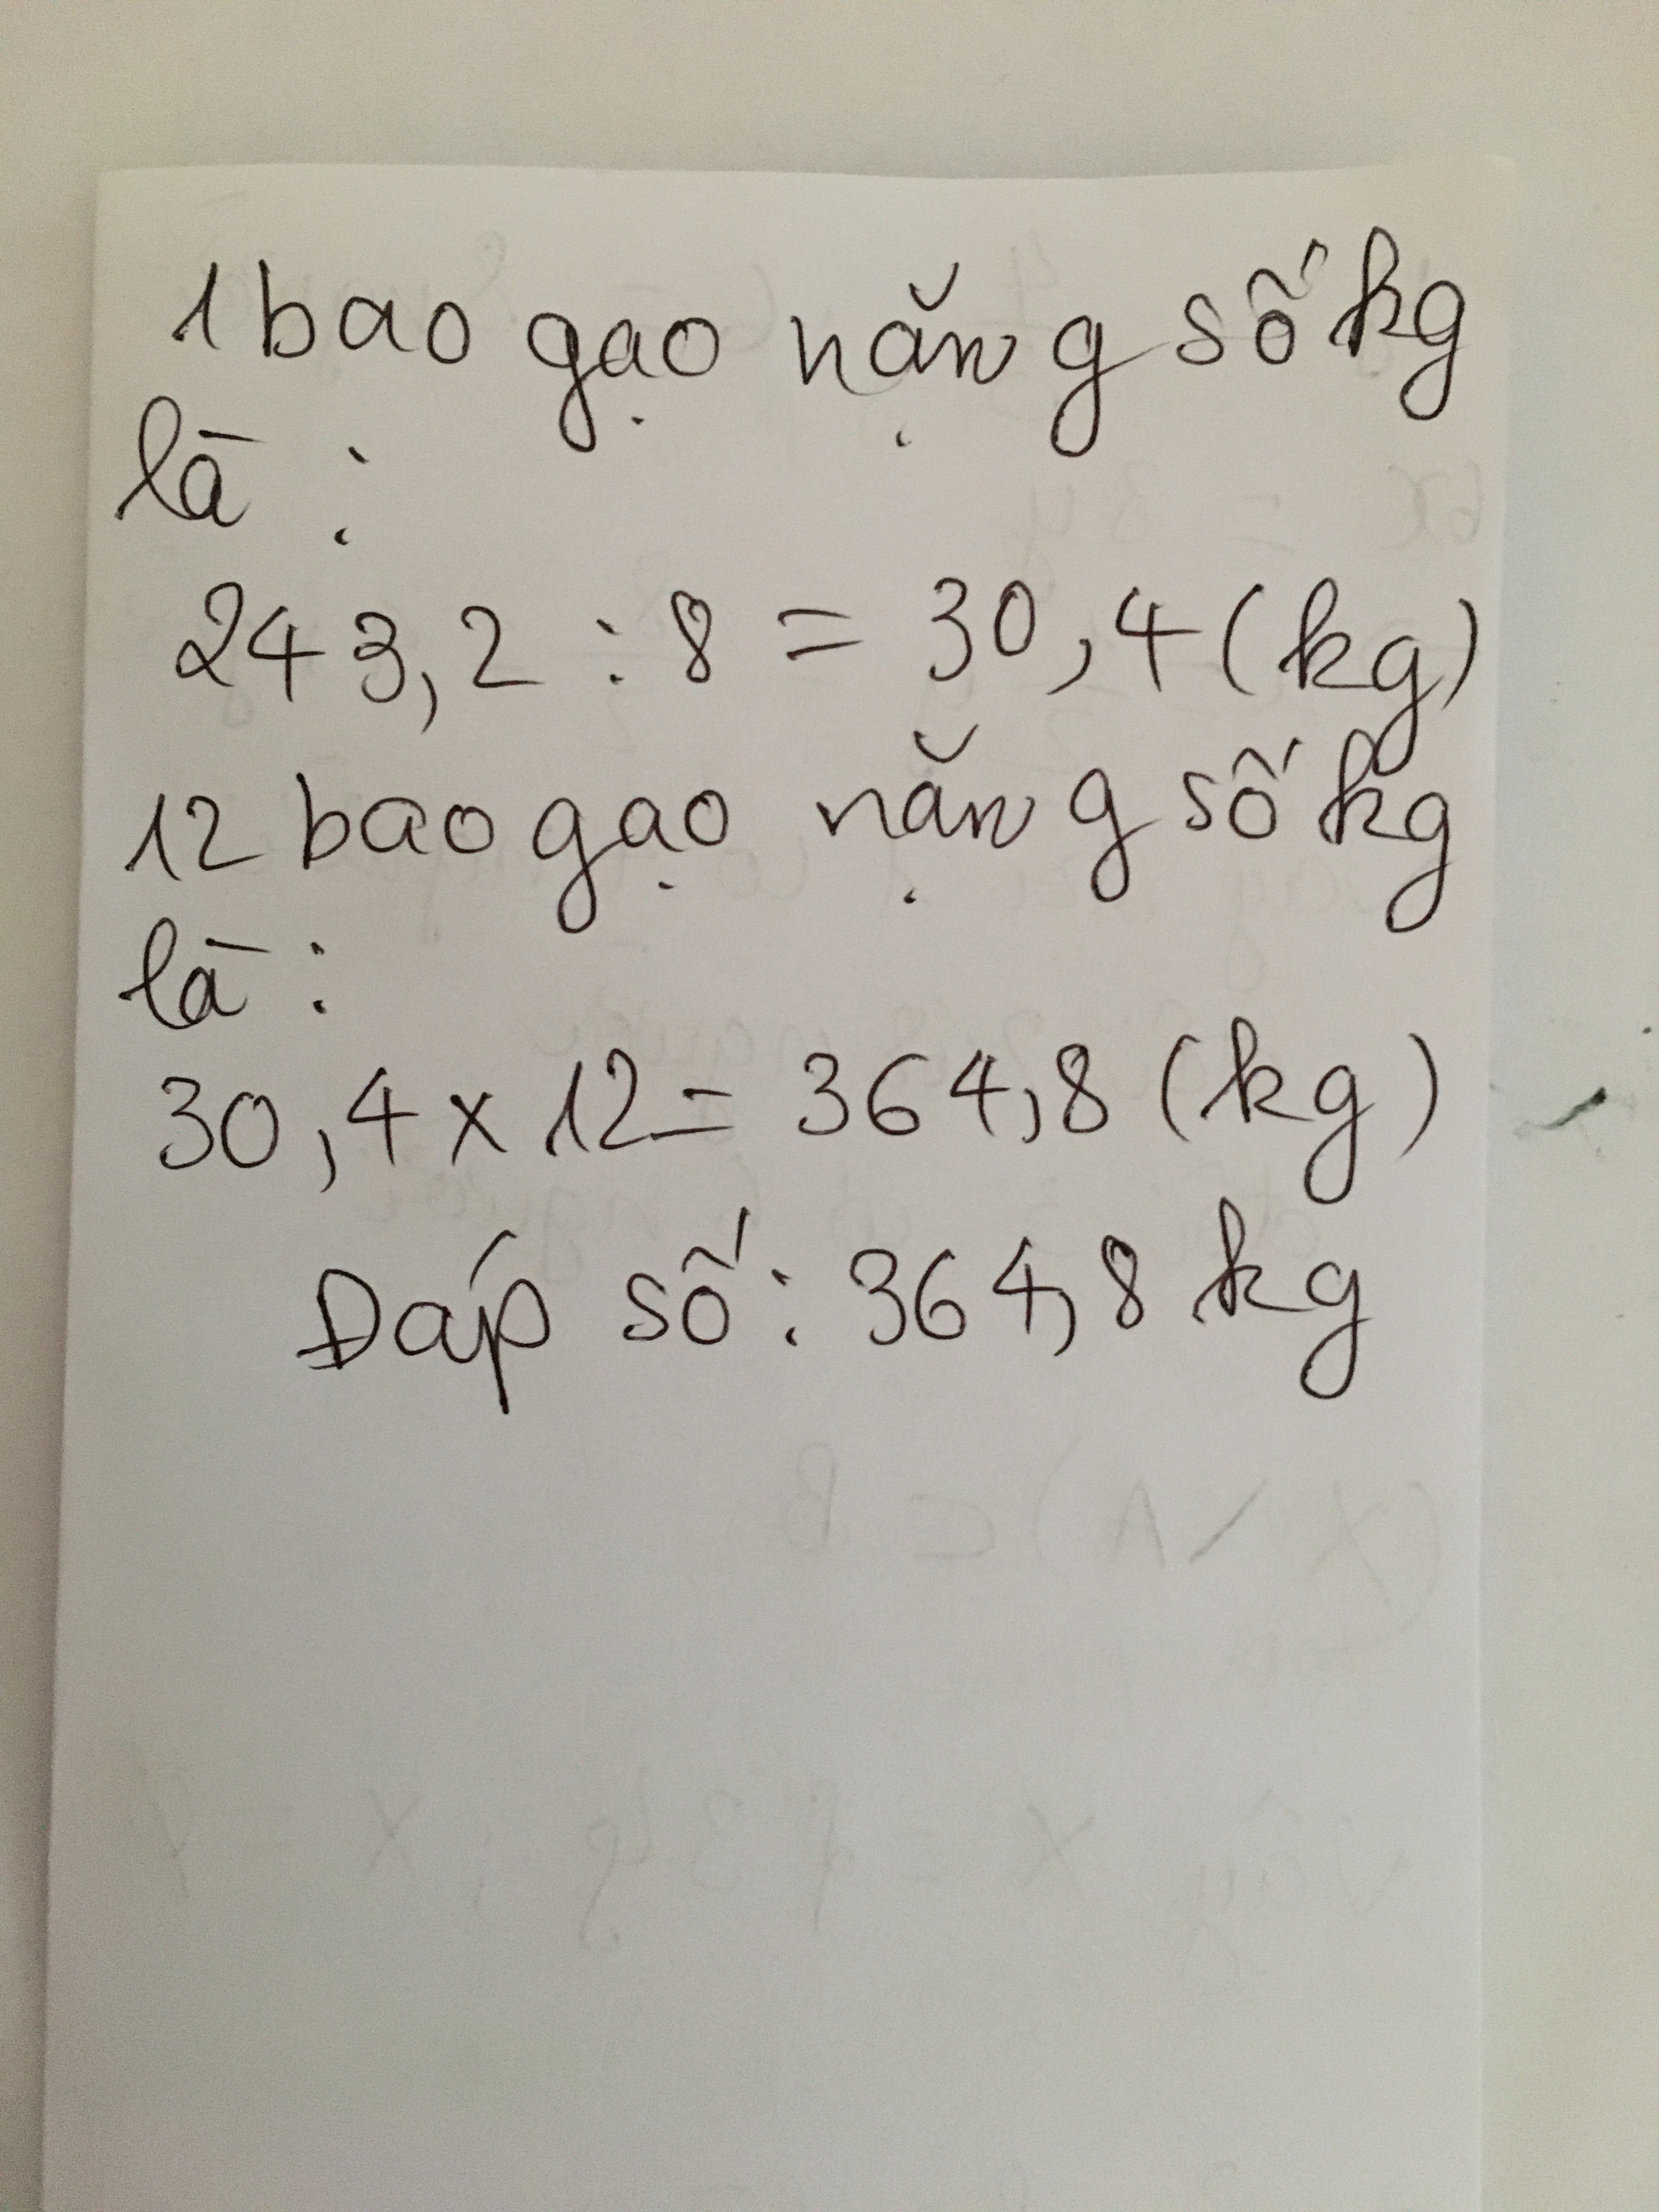 1 bao gạo nặng số kg
là :
243,2 : 8 = 30,4 (kg)
12 bao gạo nặng số kg
là :
30,4 x 12 = 364,8 (kg)
Đáp số : 364,8 kg